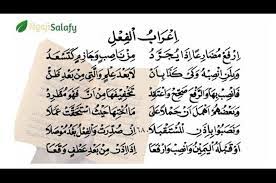 NgajiSalafy
اِعْرَابُ الْفِعْلِ
اِرْفَعْ مُضَارِعًا إِذَا يُجَرَّدُ مِنْ نَاصِبٍ وَجَازِمٍ كَتَسْعَدُ
وَبِلَنِ انْصِبْهُ وَكَيْ كَذَا بِأَنْ لَا بَعْدَ عِلْمٍ وَالَّتِي مِنْ بَعْدِ ظَنْ
فَانْصِبْ بِهَا وَالرَّفْعَ صَحِّحْ وَاعْتَقِدْ تَخْفِيفَهَا مِنْ أَنَّ فَهْوَ مُطَّرِدْ
وَبَعْضُهُمْ أَهْمَلَ أَنْ حَمْلًا عَلَى مَا أُخْتِهَا حَيْثُ اسْتَحَقَّتْ عَمَلَا
وَنَصَبُوا بِإِذَنِ الْمُسْتَقْبَلَا إِنْ صُدِّرَتْ وَالْفِعْلُ بَعْدُ مُوصَلَا
أَوْ قَبْلَهُ الْيَمِينُ وَانْصِبْ وَارْفَعَا إِذَا إِذَنْ مِنْ بَعْدِ عَطْفٍ وَقَعَا